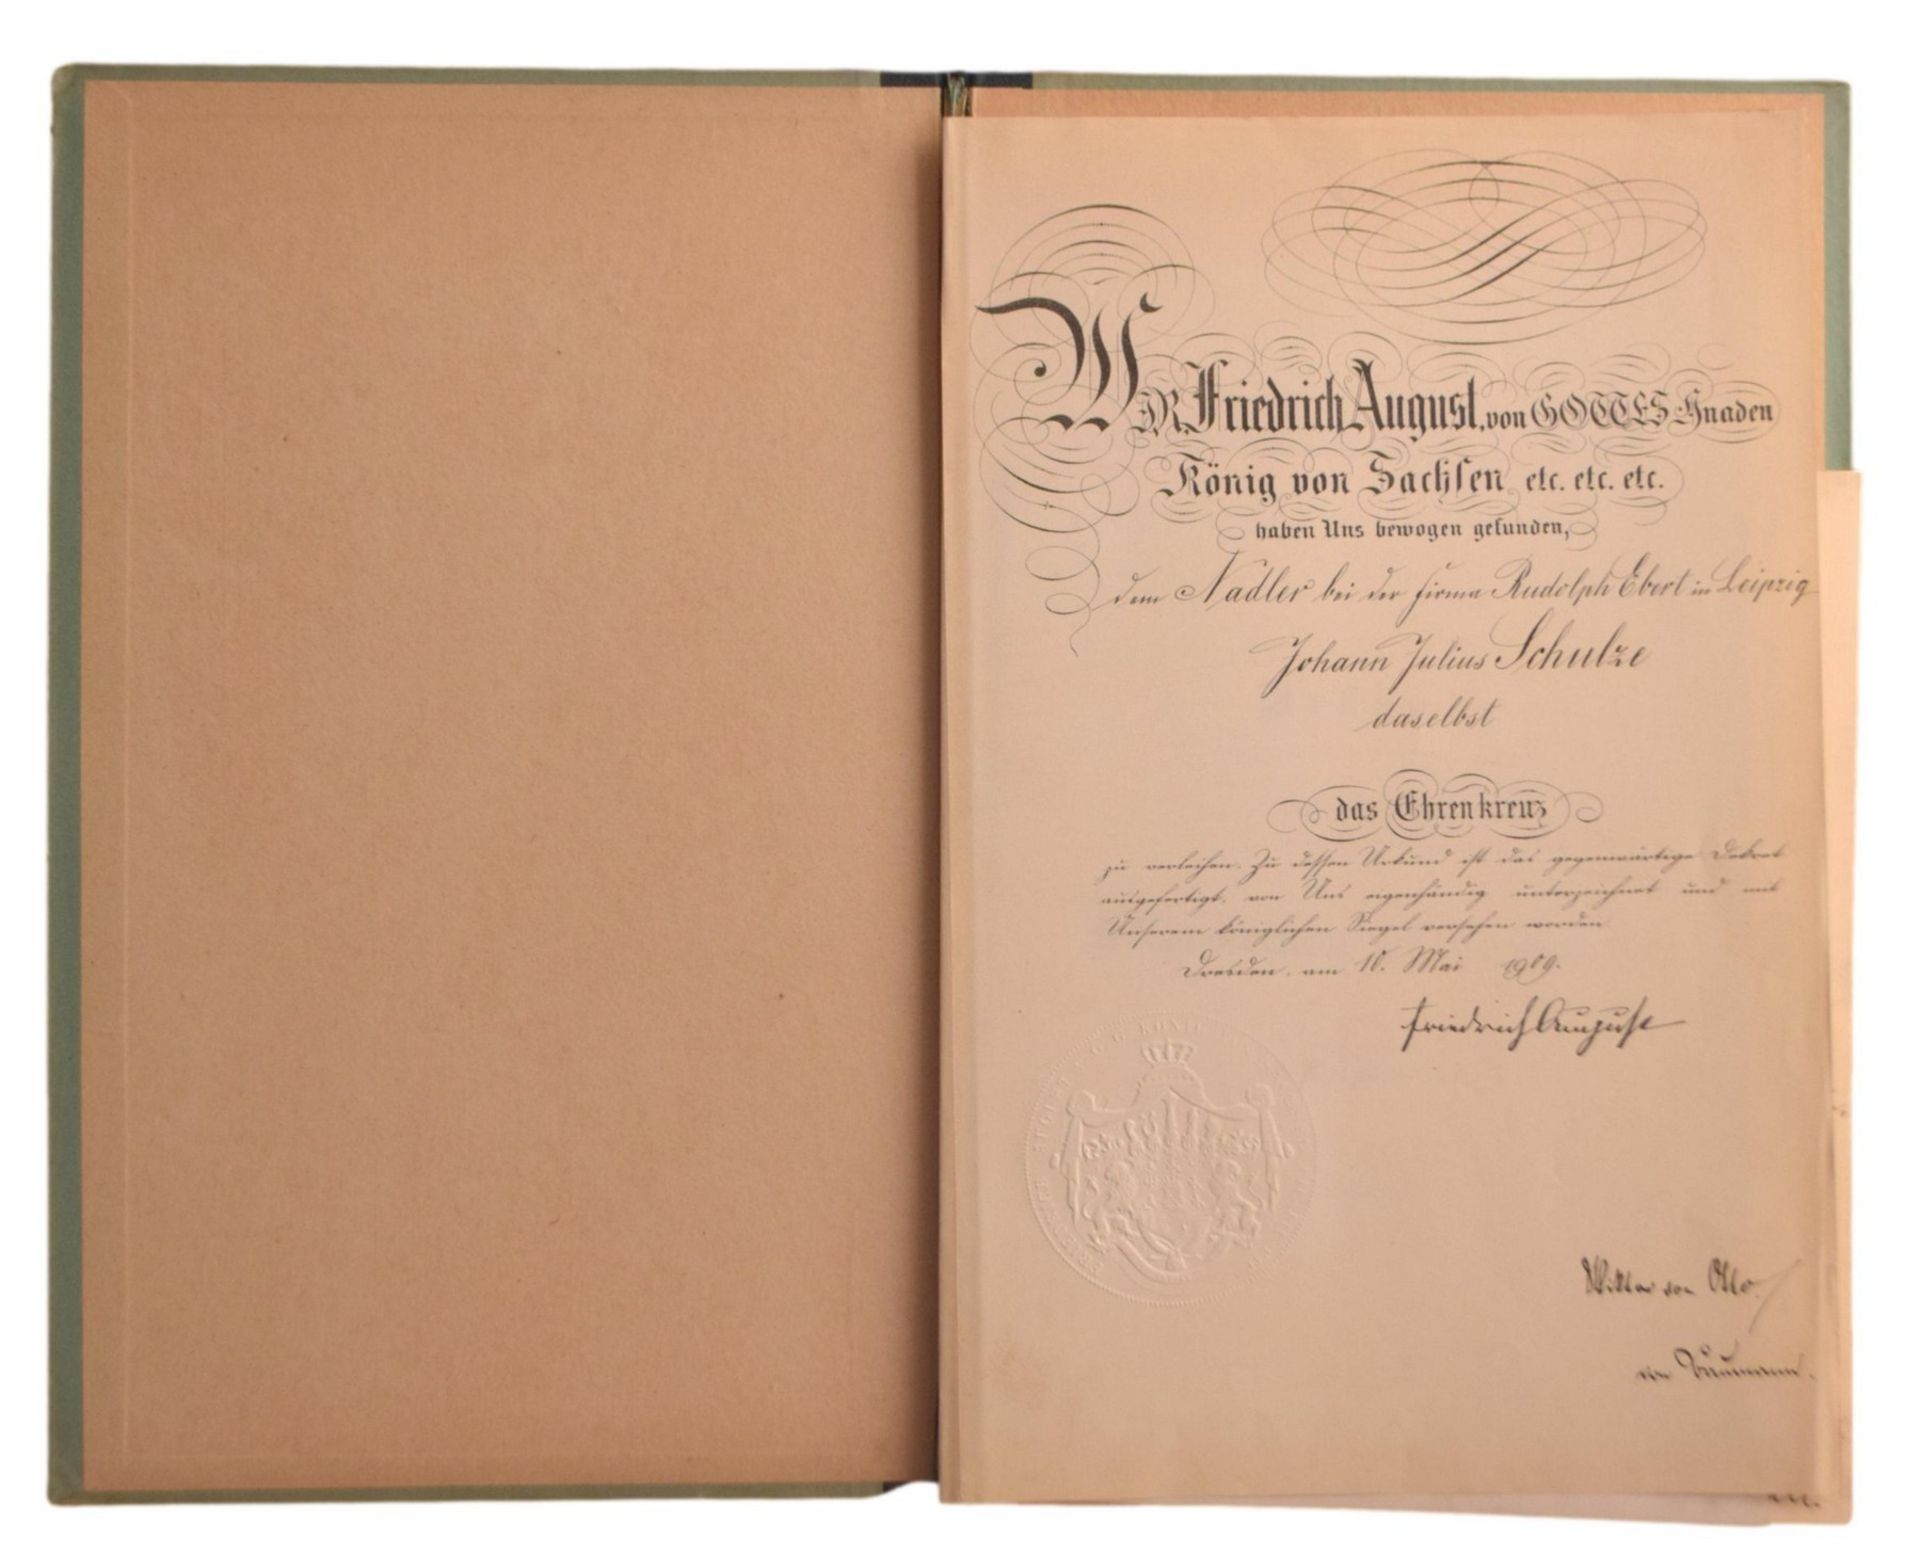 WIR, Friedrich August, von GOTTES Gnaden
König von Sachsen etc. etc. etc.
haben Uns bewogen gefunden,
dem Nadler bei der Firma Rudolph Ebert in Leipzig
Johann Julius Schulze
daselbst
das Ehrenkreuz
zu verleihen. Zu dessen Urkund ist das gegenwärtige Dekret
ausgefertigt, von Uns eigenhändig unterzeichnet und mit
Unserem königlichen Siegel versehen worden.
Dresden, am 10. Mai 1909.
Friedrich August
von Otto.
von